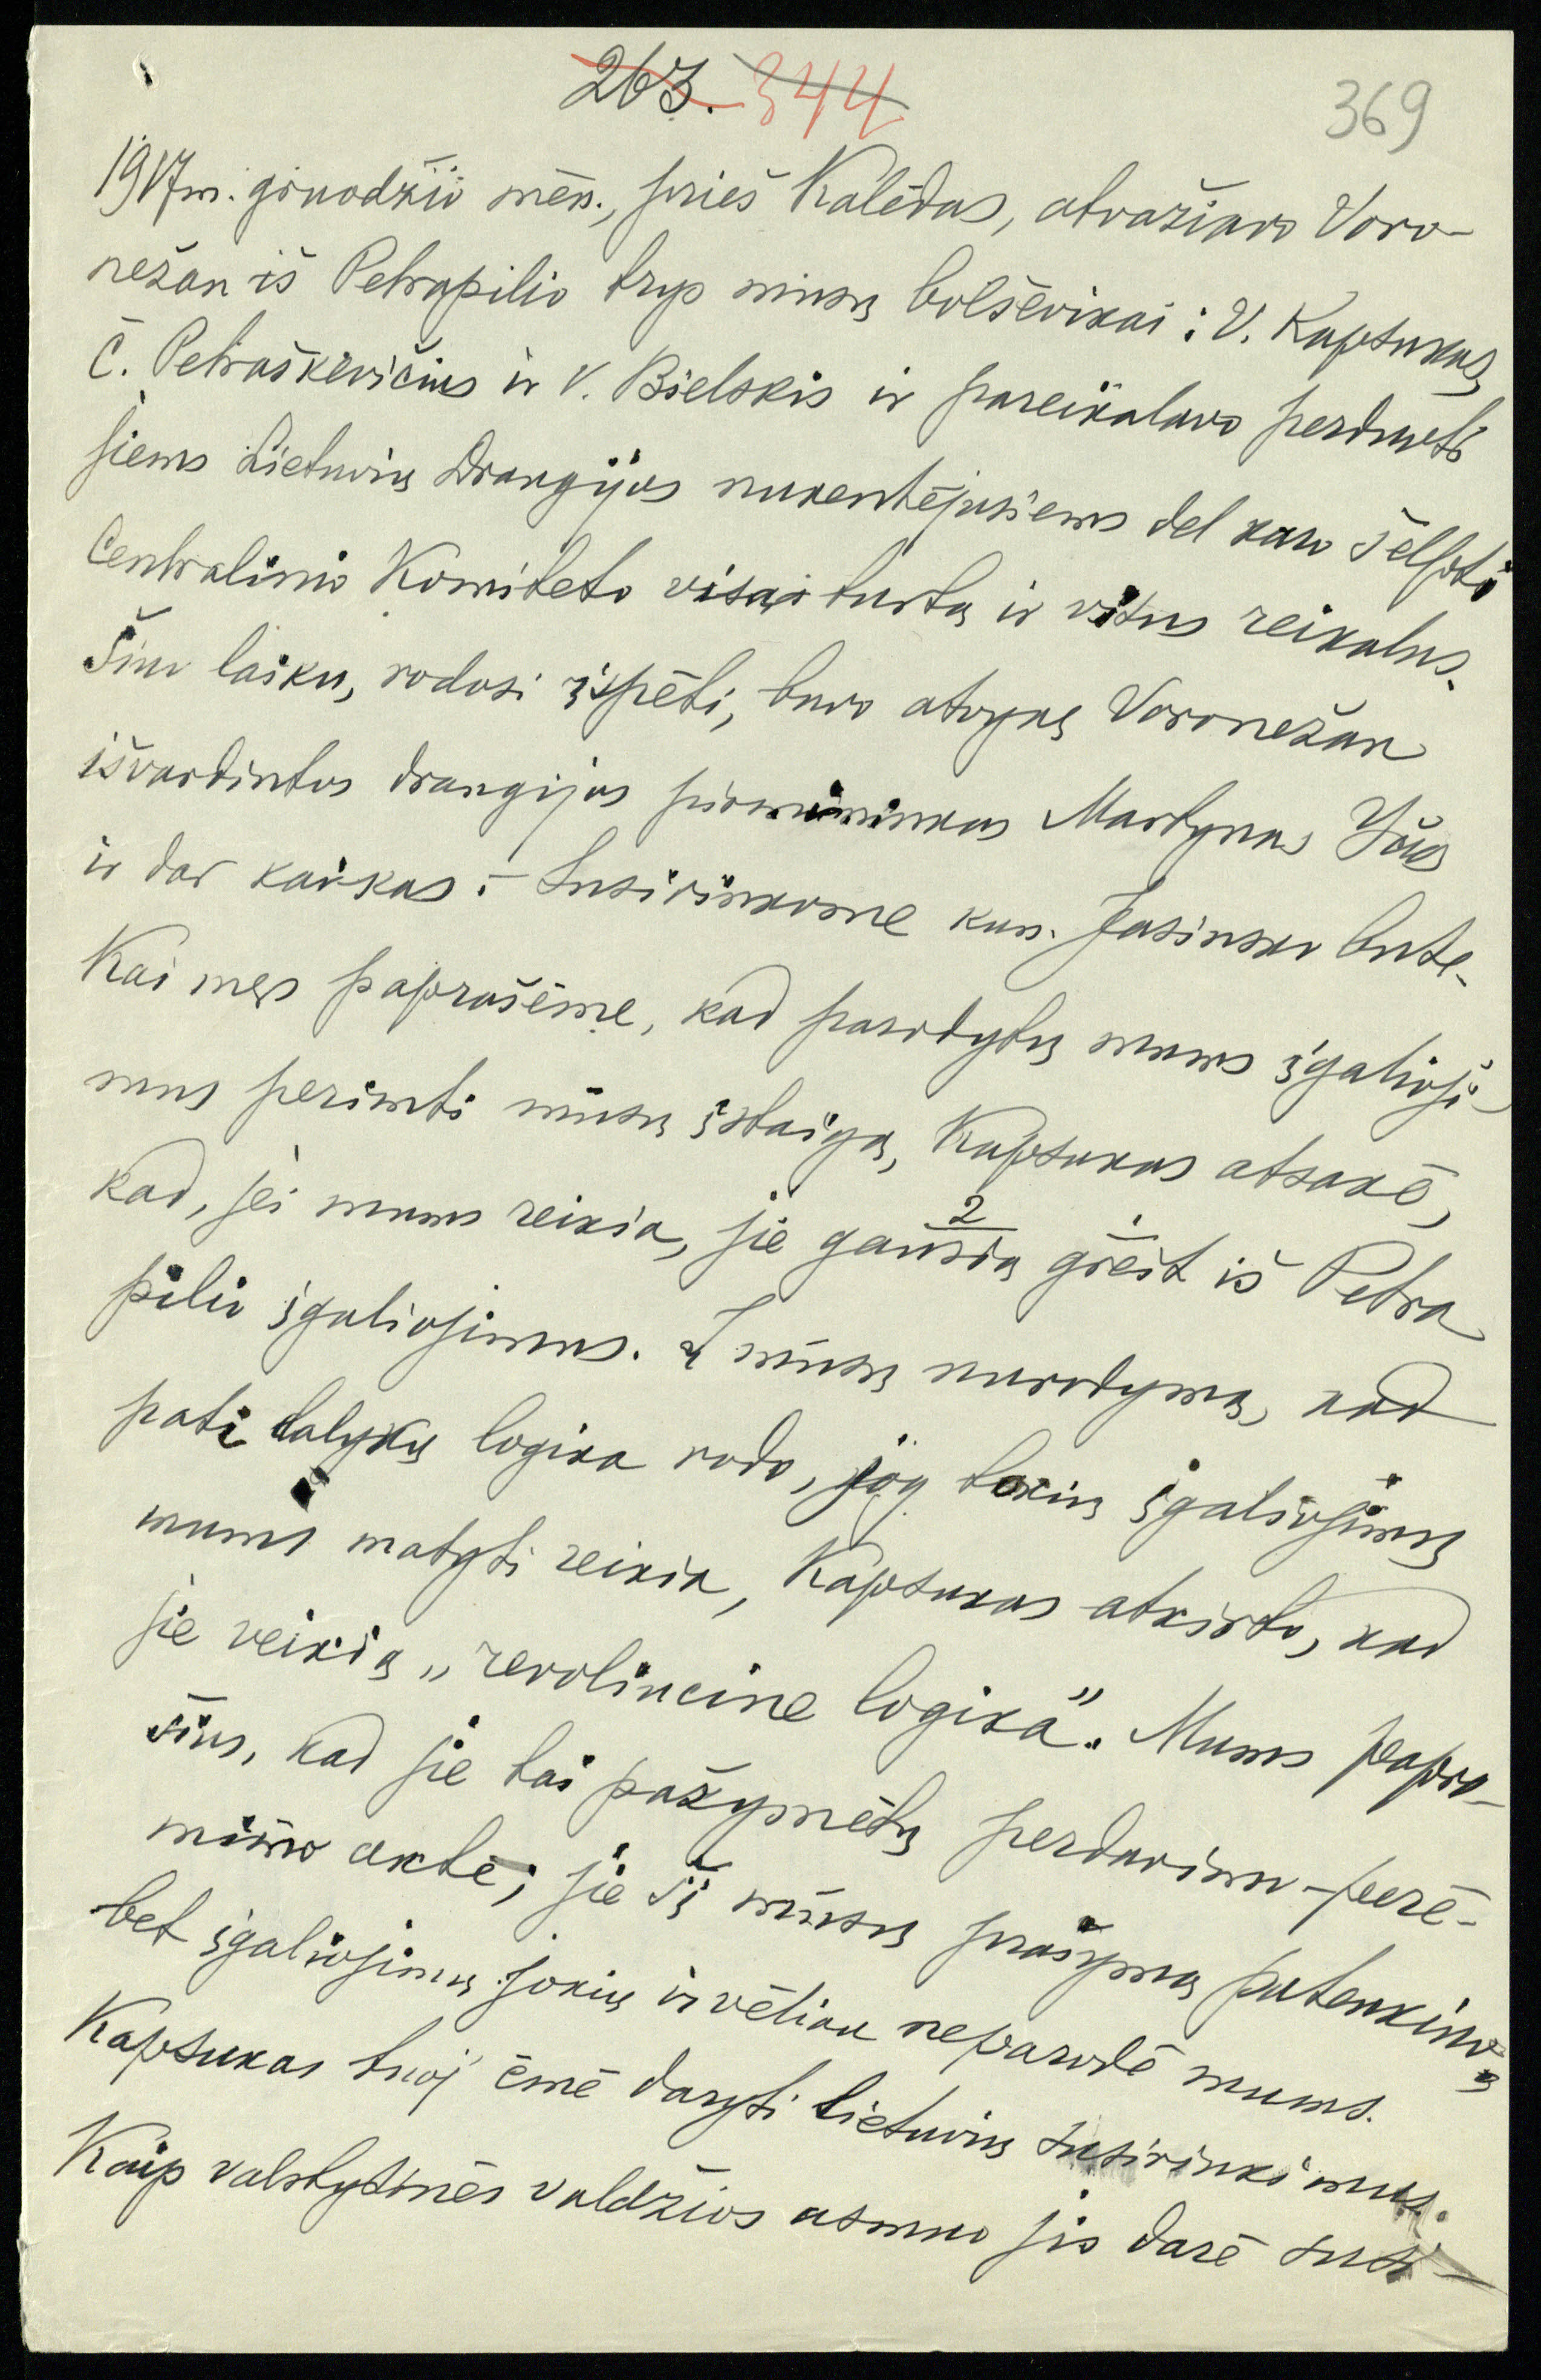 263. 344 369
1917 m. gruodžio mėn., prieš Kalėdas, atvažiavo Voro-
nežan iš Petrapilio tryp musų bolševikai: V. Kapsukas,
Č. Petraškevičius ir V. Bielskis ir pareikalavo perduoti
jiems Lietuvių Draugijos nukentėjusiems del karo šelpti
Centralinio Komiteto visą turtą ir visus reikalus.
Šiuo laiku, rodosi įspėti, buvo atvykę Voronežan
išvardintos draugijos pirmininkas Martynas Yčas
ir dar kaikas. Susirinkome kun. Jasinsko bute.
Kai mes paprašėme, kad parodytų mums įgalioji-
mus perimti mūsų įstaigą, Kapsukas atsakė,
kad, jei mums reikia, jie gausią greit iš Petra
pilio įgaliojimus. Į mūsų nurodymą, kad
pati dalykų logika rodo, jog tokių įgaliojimų
mums matyti reikia, Kapsukas atkirto, kad
jie veikią „revoliucine logika". Mums papra-
šius, kad jie tai pažymėtų perdavimo-perė-
mimo akte, jie šį mūsų prašymą patenkino,
bet įgaliojimų jokių ir vėliau neparodė mums.
Kapsukas tuoj ėmė daryti lietuvių susirinkimus.
Kaip valstybinės valdžios asmuo jis darė susi-